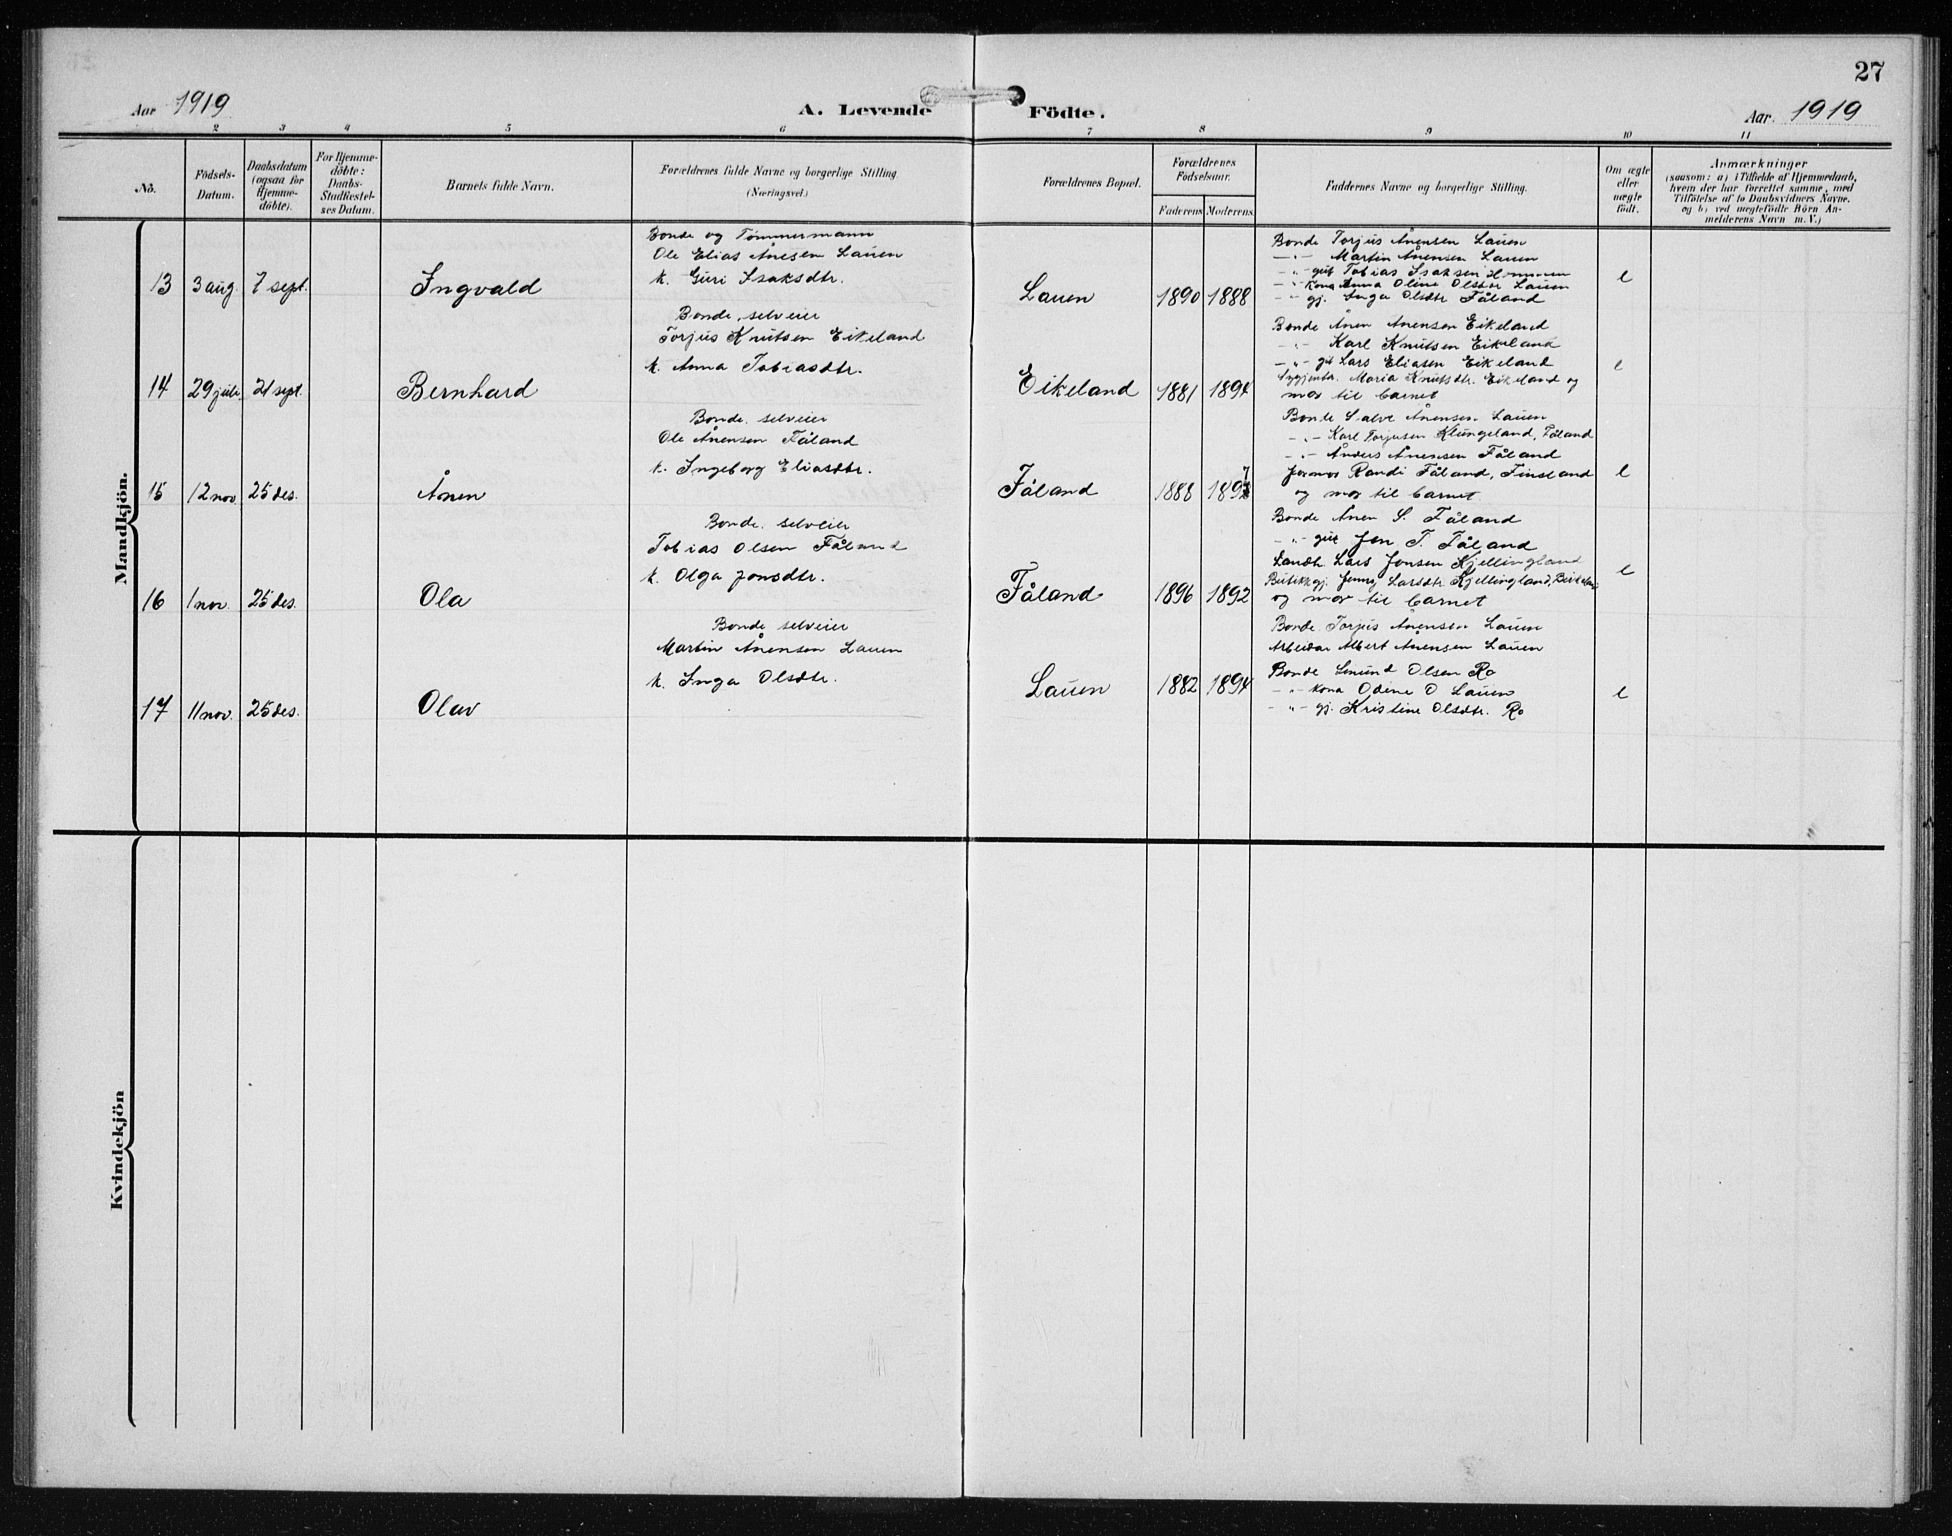 27
Aar 1919 A. Levende Födte. Aar. 1919
2 3 4 5 6 7 8 9 10 11
No.
Födsels-
Datum.
Daabsdatum
(ogsaa for
Hjemme-
döbte).
For Hjemme-
döbte:
Daabs-
Stadfæstel-
ses Datum.
Barnets fulde Navn.
Forældrenes fulde Navne og borgerlige Stilling
(Næringsvei.)
Forældrenes Bopæl.
Forældrenes
Födselsaar.
Faderens Moderens
Faddernes Navne og borgerlige Stilling.
Om ægte
eller
uægte
födt.
Anmærkninger
(saasom: a) i Tilfælde af Hjemmedaab,
hvem der har forrettet samme, med
Tilföielse af to Daabsvidners Navne.
og b) ved uægtefödte Börn An-
melderens Navn m. V.)
Mandkjön.
13 3 aug. 7 sept. Ingvald
Bonde og Tømmermann
Ole Elias Ånesen Lauen
k. Guri Isaksdtr.
Lauen 1890 1888
Bonde Torjus Ånensen Lauen
-"- Martin Ånensen Lauen
-"- gut Tobias Isaksen
-"- kona Anna Oline Olsdtr Lauen
-"- gj. Inga Olsdtr Fåland
e
14 29 juli 21 sept. Bernhard
Bonde, selveier
Torjus Knutsen Eikeland
k. Anna Tobiasdtr.
Eikeland 1881 1894
Bonde Ånen Ånensen Eikeland
-"- Karl Knutsen Eikeland
-"- gut Lars Eliasen Eikeland
Maria Knutsdtr. Eikeland og
mor til barnet
e
15 12 nov 25 des. Ånen
Bonde, selveier
Ole Ånensen Fåland
k. Ingeborg Eliasdtr.
Fåland 1888 1897
Bonde Salve Ånensen Lauen
-"- Karl Torjusen Klungeland, Fåland
-"- Anders Ånensen Fåland
Jormor Randi Fåland, Finsland
og mor til barnet
e
16 1 nov. 25 des. Ola
Bonde, selveier
Tobias Olsen Fåland
k. Olga Jonsdtr.
Fåland 1896 1892
Bonde Ånen S. Fåland
-"- gut Jon T. Fåland
Landh. Lars Jonsen Kjellingland
Butikkgj. Jenny Larsdtr Kjellingland, Birkeland
og mor til barnet
e
17 11 nov. 25 des. Olav
Bonde selveier
Martin Ånensen Lauen
k. Inga Olsdtr.
Lauen 1882 1894
Bonde Torjus Ånensen Lauen
Arbeidar Albert Ånensen Lauen
Bonde Omund Olsen Ro
-"- kona Odine O Lauen
-"- gj. Kristine Olsdtr. Ro
e
Kvindekjön